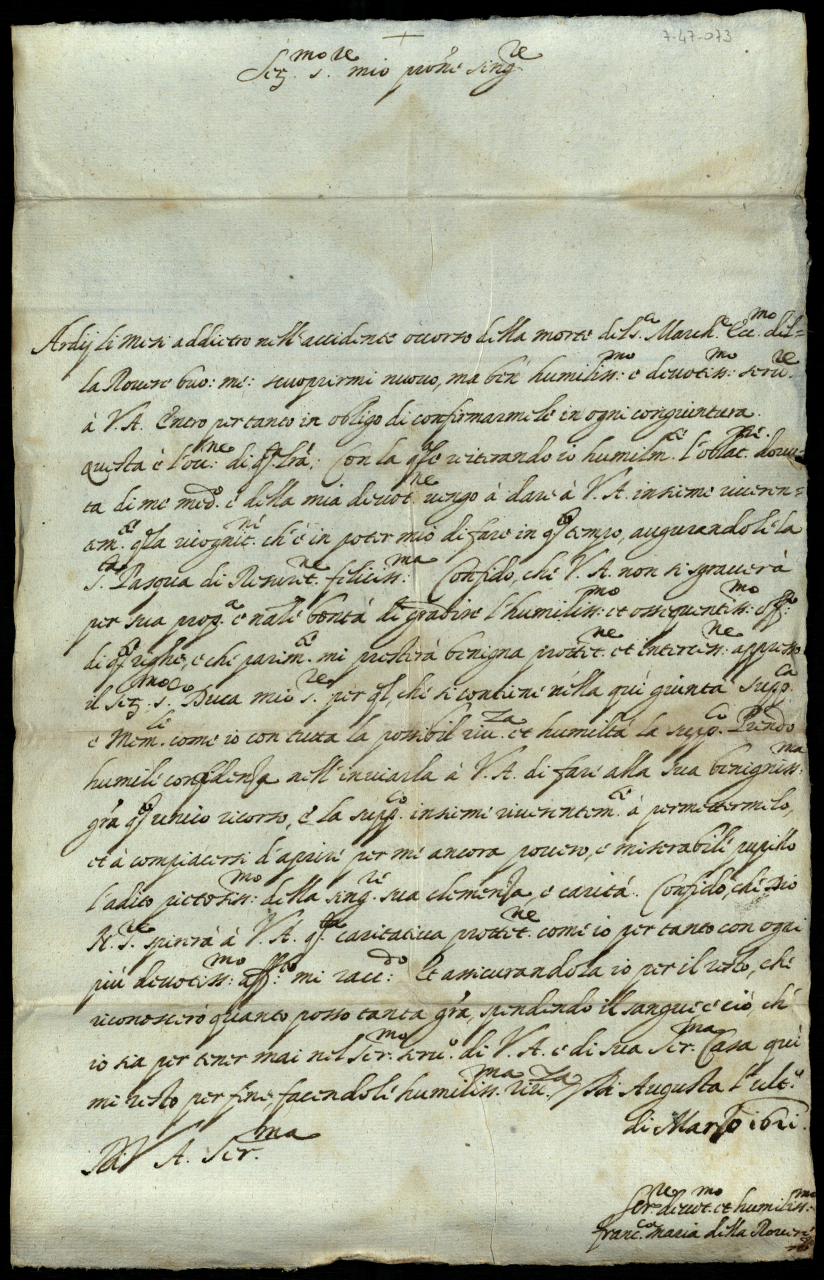 7-47-073
Ser.mo S.re mio prõne sing.re
Ardij li mesi addietro nell'accidente occorso della morte del S.r March.e Ecc.mo del=
la Rovere buo: me: scuoprirmi nuovo, ma ben humiliss:mo e devotiss:mo serv.re
à V.A. Entro per tanto in obligo di confirmarmele in ogni congiuntura.
questa è l'occ.ne di qsta lrã; Con la qle reiterando io humilm.e l'oblat.ne dovu=
ta di me med.o e della mia devot.ne vengo à dare à V.A. insieme riveren=
tem.e qlla ricognit.ne ch'è in poter mio di fare in qsto tempo, augurandole la
S.ta Pasqua di Resurret.ne feliciss:ma Confido, che V.A. non si sgraverà
per sua prop.a e nãle bontà di gradire l'humiliss:mo et ossequentiss:mo off.o
di qste righe, e che parim.e mi presterà benigna protet.ne et intercess.ne appresso
il Ser.mo S.r Duca mio S.re per ql, che si contiene nella quì giunta supp.ca
e Mem.le come io con tutta la possibil riv.za et humiltà la supp.co Prendo
humile confidenza nell'inviarla à V.A. di fare alla sua benigniss:ma
grã qsto unico ricorso, e la supp.co insieme riverentem.e à permettermelo,
et à compiacersi d'aprire per me ancora povero, e miserabile pupillo
l'adito pietosiss:mo della sing.re sua clemenza, e carità. Confido, che Dio
N.S.re spirerà à V.A. qsta caritativa protet.ne come io per tanto con ogni
più devotiss:mo aff.to mi racc:do Et assicurandola io per il resto, che
riconoscerò quanto posso tanta grã, spendendo il sangue e ciò, che
io sia per tener mai nel Ser.mo serv.o di V.A. e di sua Ser.ma Casa quì
mi resto per fine, facendole humiliss.ma riv.za Di Augusta l'ult.o
di Marzo 1621.
Di V.A. Ser.ma
Ser.re devot.mo et humiliss:mo
Franc.co maria della Rovere